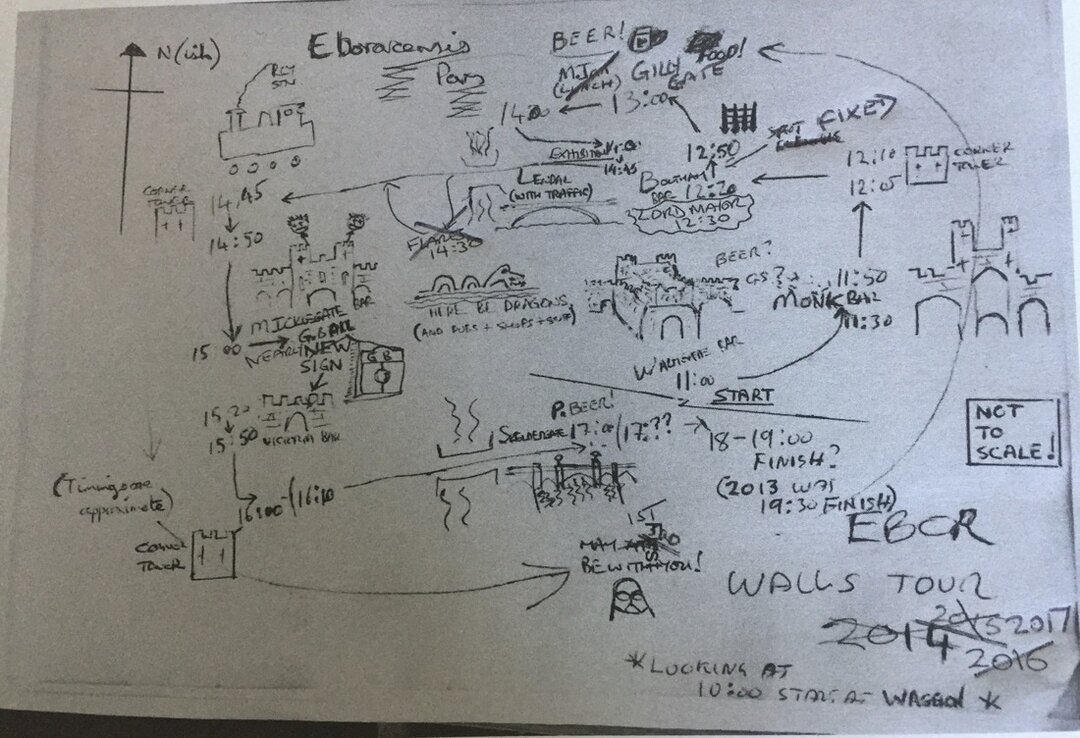 N(ish)
Eboracensis
Pons
BEER!
FOOD!
GILLY
GATE
(LUNCH)
13:00
14:00
RLY
STN
EXHIBITION
14:45
LENDAL
(WITH TRAFFIC)
12:50
FIXED
BOOTHAM
BAR
12:20
LORD MAYOR
12:30
12:10
12:05
CORNER
TOWER
CORNER
TOWER
14:45
14:50
14:30
MICKLEGATE
BAR
HERE BE DRAGONS
(AND PUBS + SHOPS + STUFF)
BEER?
GS?
11:50
MONK BAR
11:30
WALMGATE BAR
11:00
START
15:00
NEARLY
NEW
SIGN
G B
15:20
15:50
VICTORIA BAR
P. BEER!
SKELDERGATE 17:00 (17:??
18-19:00
FINISH?
(2013 WAS
19:30 FINISH)
NOT
TO
SCALE!
(Timings are
approximate)
16:00-(16:10
CORNER
TOWER
1ST
MAY
BE WITH YOU!
EBOR
WALLS TOUR
2014 2015 2017
2016
*LOOKING AT
10:00 START AT WAGGON *